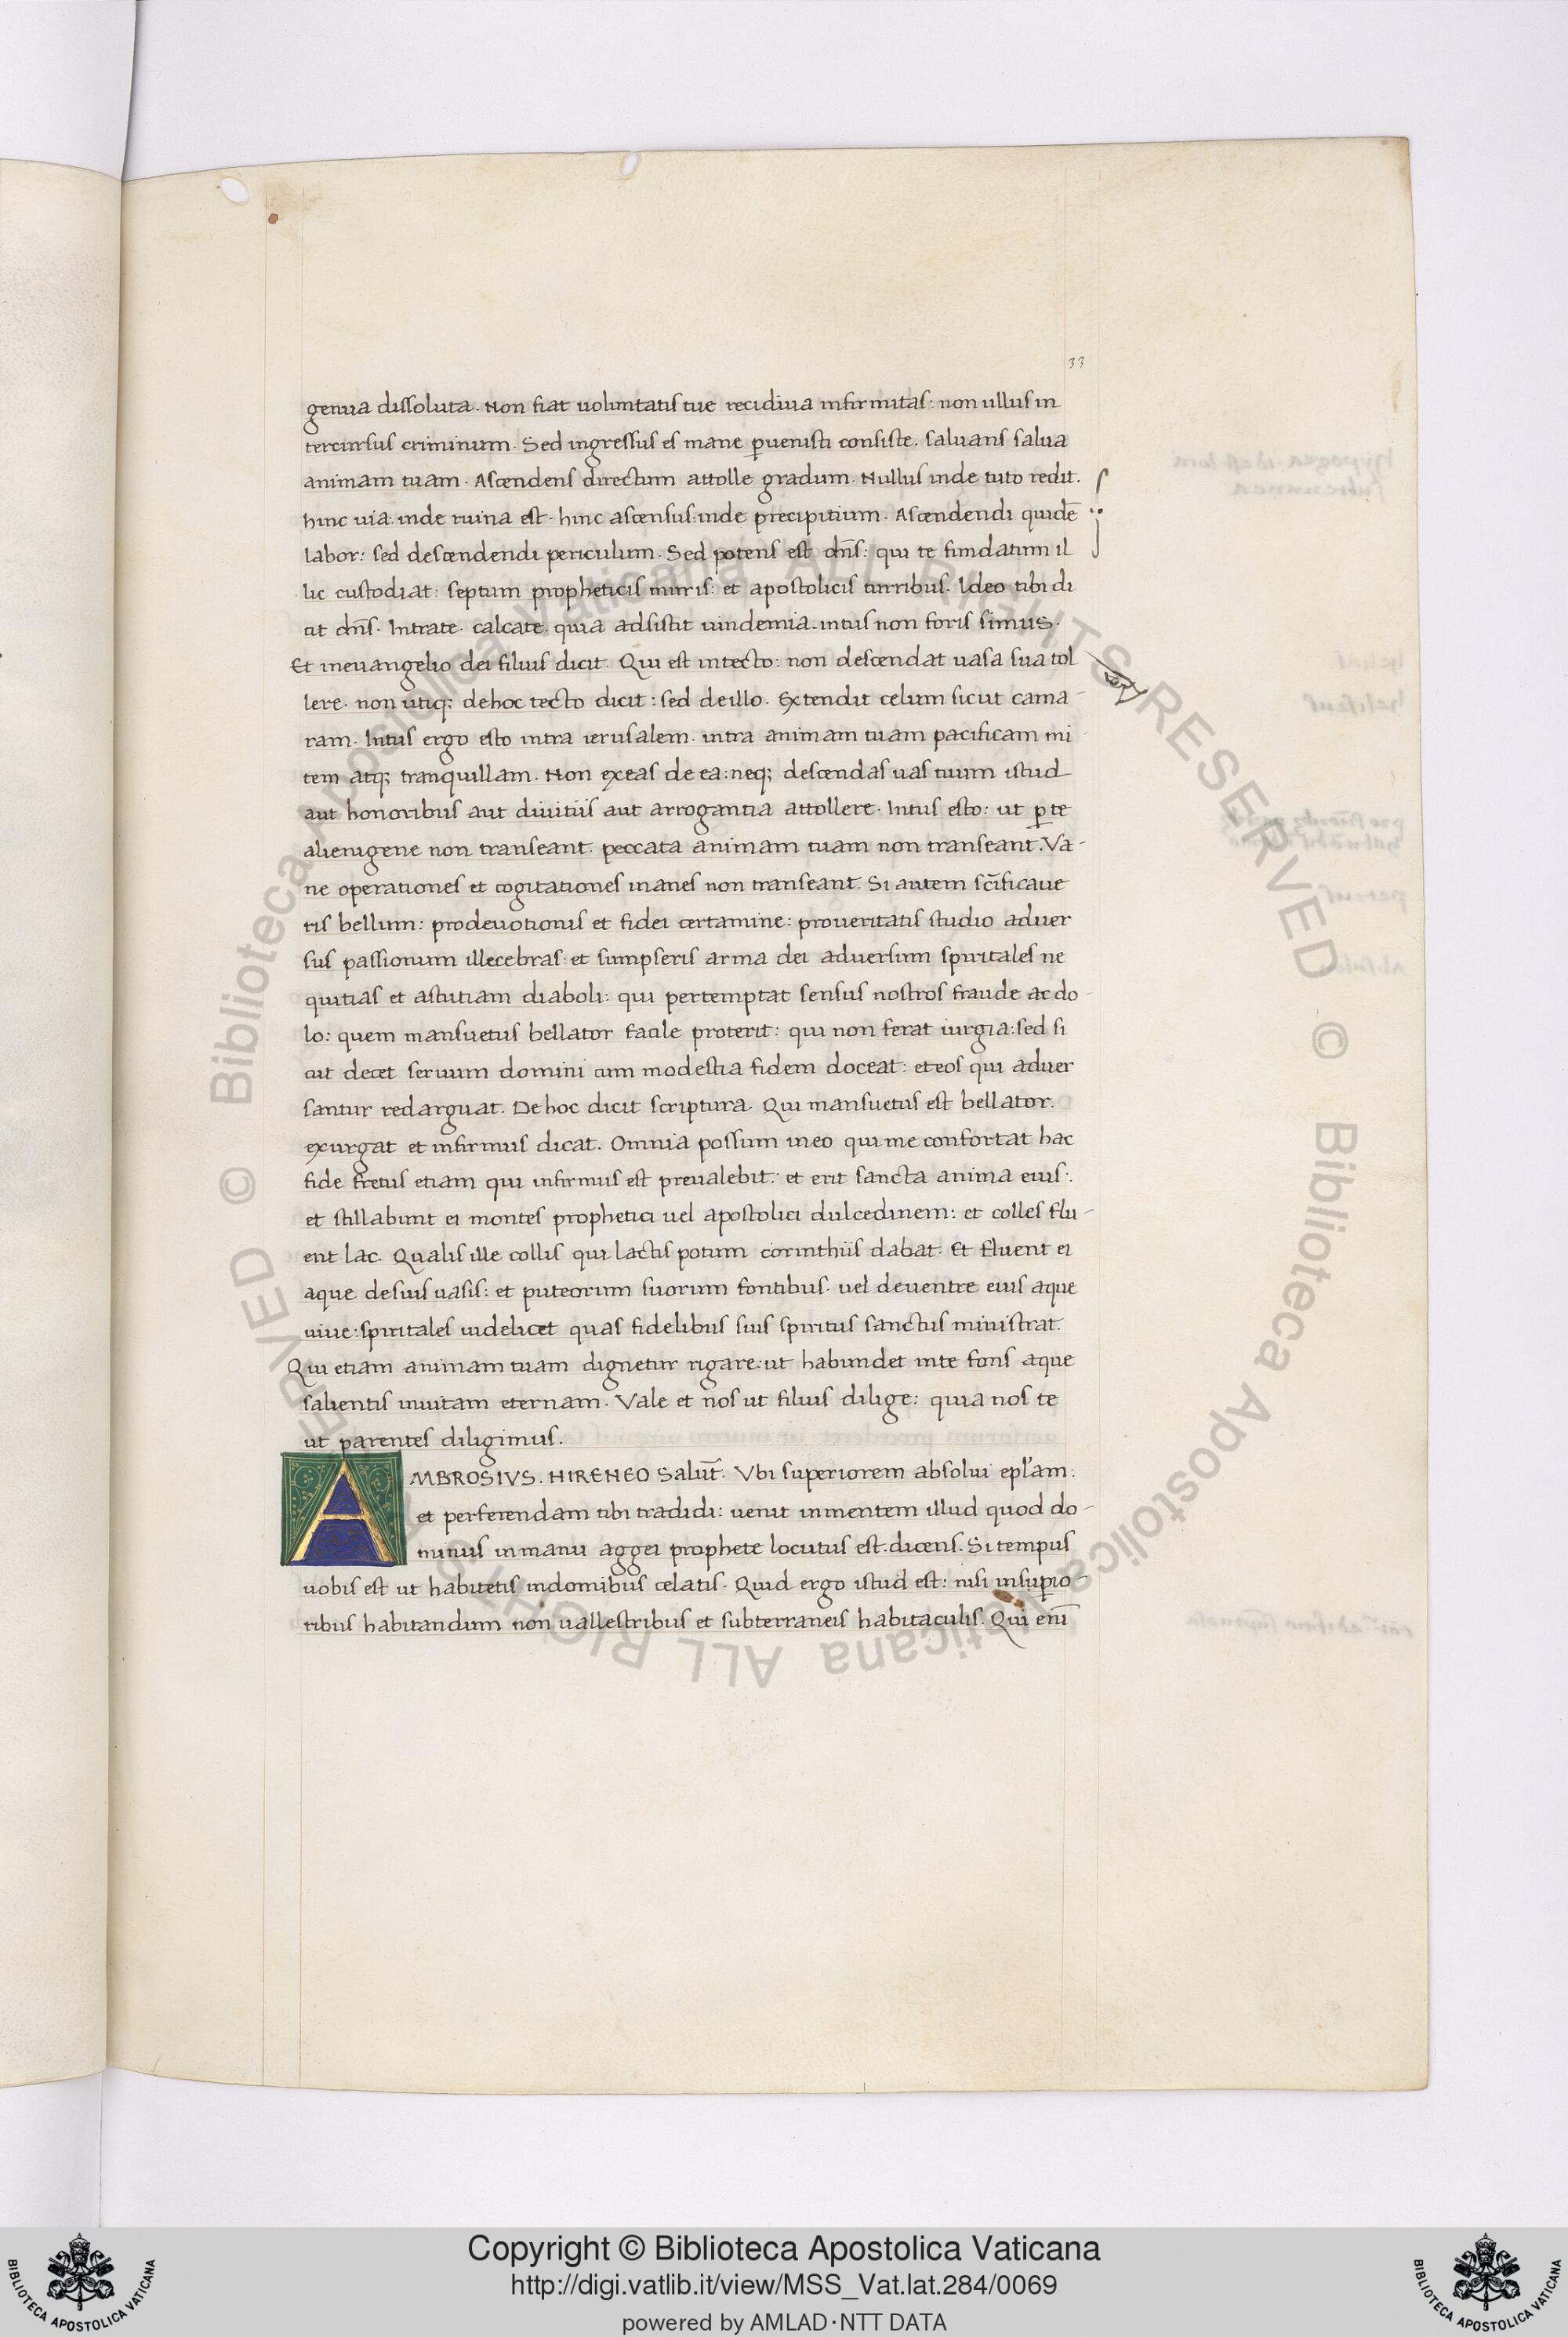 33
genua dissoluta. Non fiat uoluntatis tue recidiua infirmitas: non ullus in
tercursus criminum. Sed ingressus es mane p̱uenisti consiste. saluans salua
animam tuam. Ascendens directum attolle gradum. Nullus inde tuto redit.
hinc uia: inde ruina est. hinc ascensus: inde precipitium. Ascendendi quidē
labor: sed descendendi periculum. Sed potens est dn̄s: qui te fundatum il
lic custodiat: septum propheticis muris: et apostolicis turribus. Ideo tibi di
cit dn̄s. Intrate. calcate. quia adsistit uindemia. intus non foris simus.
Et ineuangelio dei filius dicit. Qui est intecto: non descendat uasa sua tol
lere. non utiq; dehoc tecto dicit: sed deillo. Extendit celum sicut cama-
ram. Intus ergo esto intra ierusalem. intra animam tuam pacificam mi
tem atq; tranquillam. Non exeas de ea: neq; descendas uas tuum istud
aut honoribus aut diuitiis aut arrogantia attollere. Intus esto: ut p̱ te
alienigene non transeant. peccata animam tuam non transeant. Va-
ne operationes et cogitationes inanes non transeant. Si autem sc̄ificaue
ris bellum: prodeuotionis et fidei certamine: proueritatis studio aduer
sus passionum illecebras: et sumpseris arma dei aduersum spiritales ne
quitias et astutiam diaboli: qui pertemptat sensus nostros fraude ac do-
lo: quem mansuetus bellator facile proterit: qui non ferat iurgia: sed si
cut decet seruum domini cum modestia fidem doceat: et eos qui aduer
santur redarguat. De hoc dicit scriptura. Qui mansuetus est bellator.
exurgat et infirmus dicat. Omnia possum ineo qui me confortat hac
fide fretus etiam qui infirmus est preualebit: et erit sancta anima eius:
et stillabunt ei montes prophetici uel apostolici dulcedinem: et colles flu-
ent lac. Qualis ille collis qui lactis potum corinthiis dabat. Et fluent ei
aque desuis uasis: et puteorum suorum fontibus. uel deuentre eius aque
uiue: spiritales uidelicet quas fidelibus suis spiritus sanctus ministrat.
Qui etiam animam tuam dignetur rigare: ut habundet inte fons aque
salientis inuitam eternam. Vale et nos ut filius dilige: quia nos te
ut parentes diligimus.
AMBROSIVS. HIRENEO Salut̄. Vbi superiorem absolui epl'am:
et perferendam tibi tradidi: uenit inmentem illud quod do-
minus inmanu aggei prophete locutus est. dicens. Si tempus
uobis est ut habitetis indomibus celatis. Quid ergo istud est: nisi insup̱io-
ribus habitandum non uallestribus et subterraneis habitaculis. Qui eni̅
© Biblioteca Apostolica Vaticana ALL RIGHTS RESERVED © Biblioteca Apostolica Vaticana ALL RIGHTS RESERVED
Copyright © Biblioteca Apostolica Vaticana
http://digi.vatlib.it/view/MSS_Vat.lat.284/0069
powered by AMLAD·NTT DATA
BIBLIOTECA APOSTOLICA VATICANA
BIBLIOTECA APOSTOLICA VATICANA